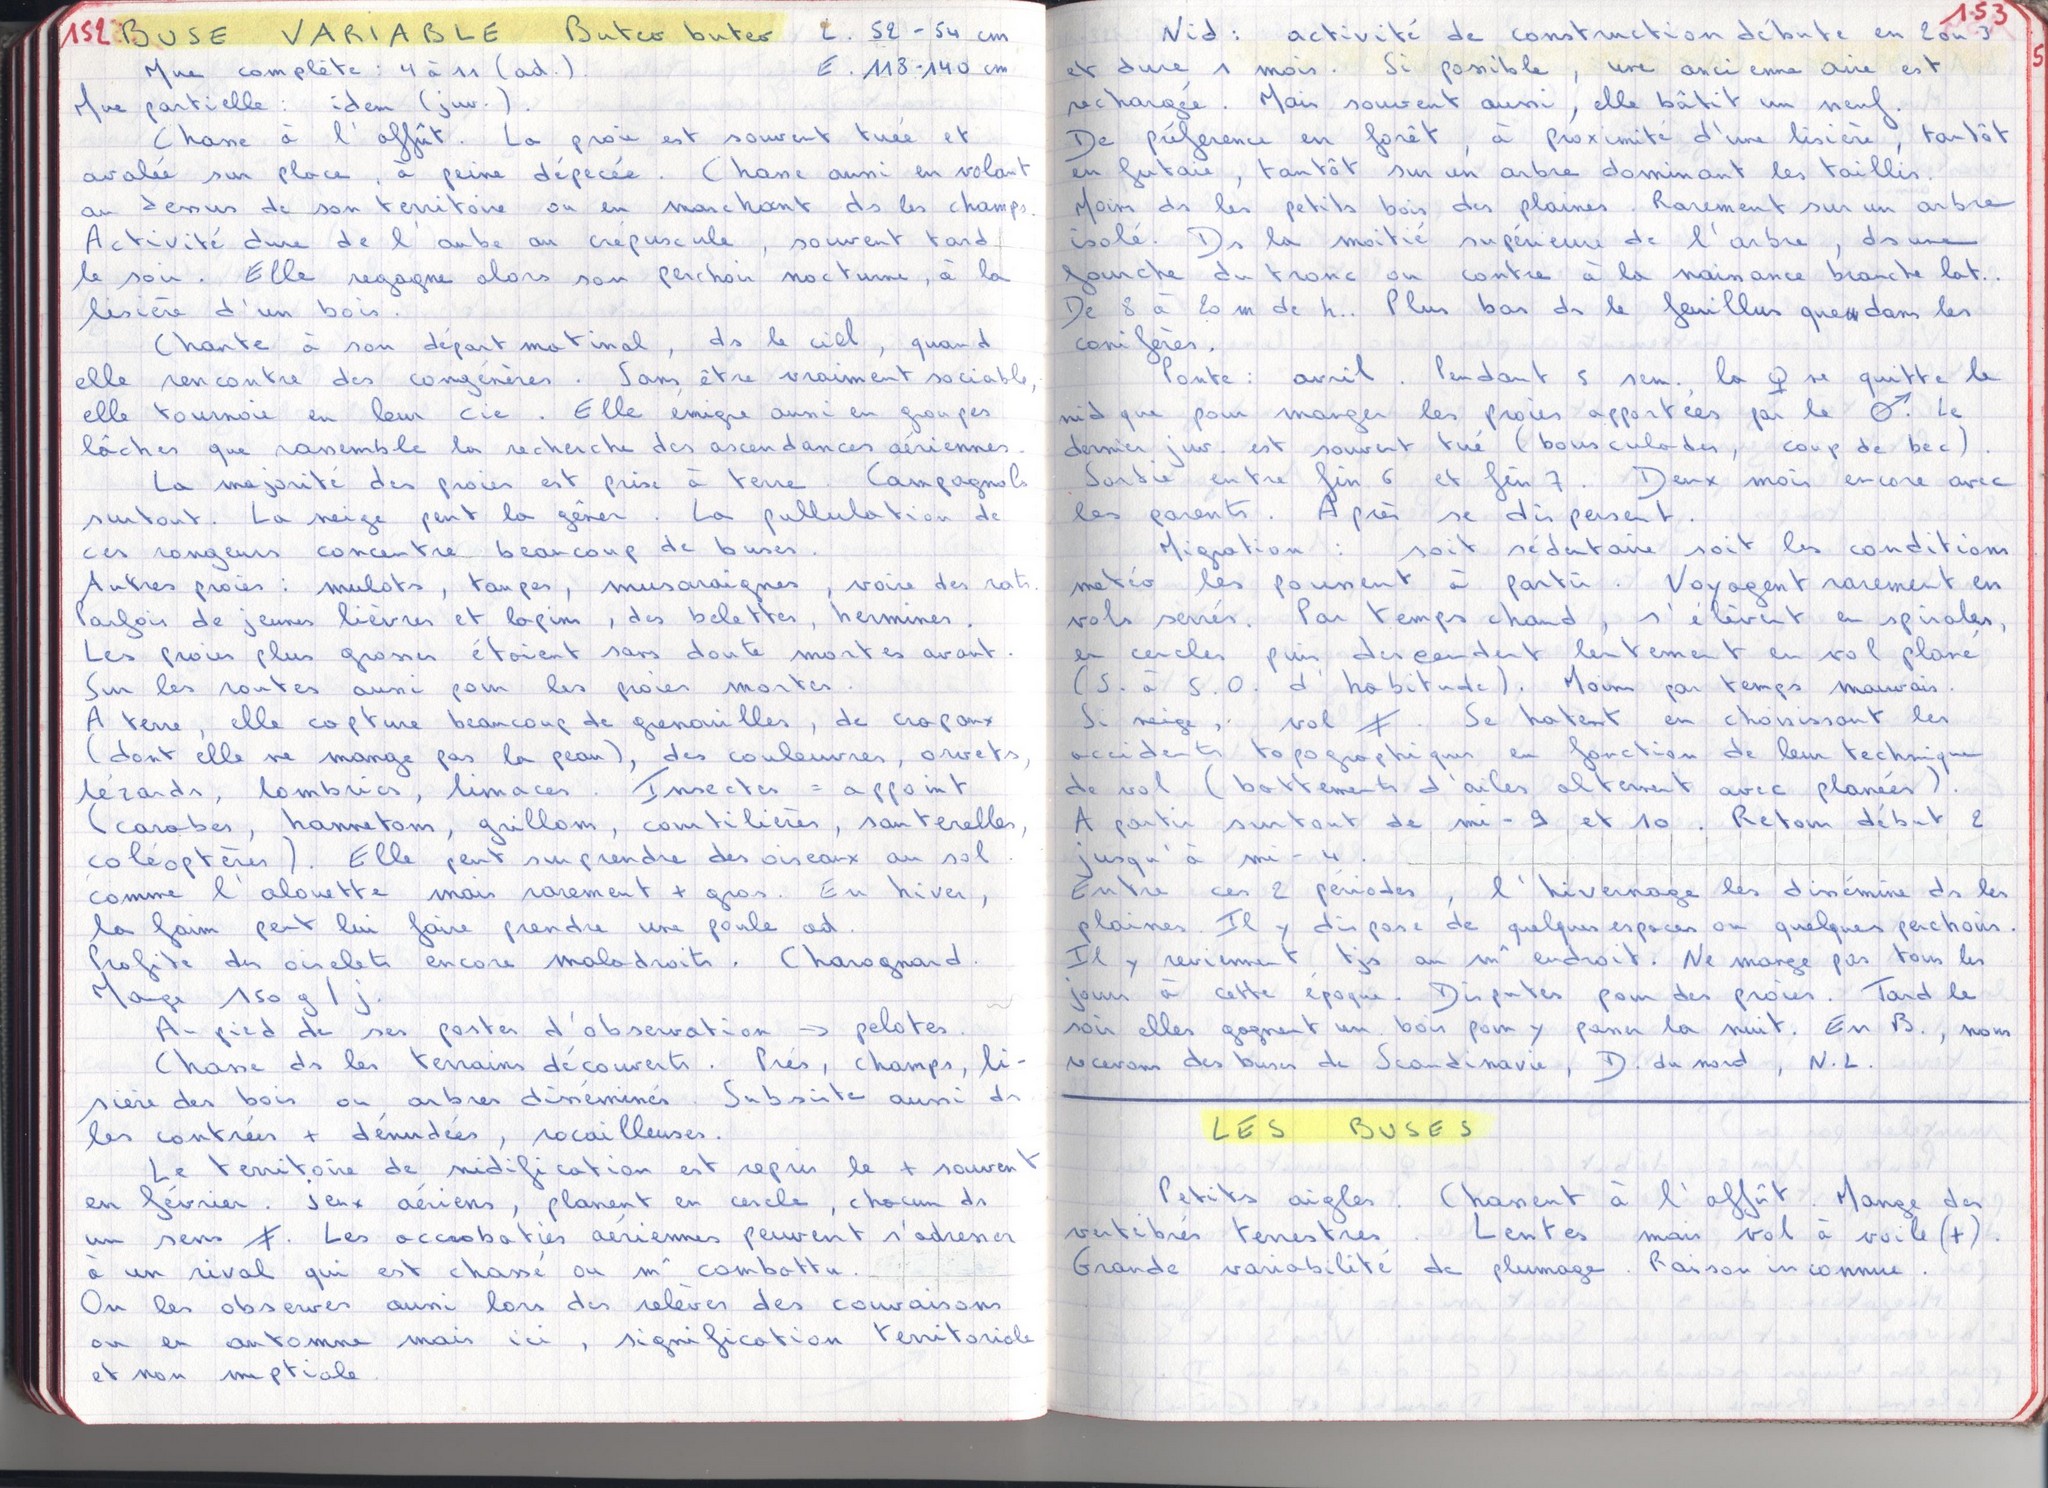 152 BUSE VARIABLE Buteo buteo L. 52-54 cm
Mue complète : 4 à 11 (ad.). E. 113-140 cm
Mue partielle : idem (juv.).
Chasse à l'affût. La proie est souvent tuée et
avalée sur place, à peine dépecée. Chasse aussi en volant
au dessus de son territoire ou en marchant ds les champs.
Activité dure de l'aube au crépuscule, souvent tard
le soir. Elle regagne alors son perchoir nocturne, à la
lisière d'un bois.
Chante à son départ matinal, ds le ciel, quand
elle rencontre des congénères. Sans être vraiment sociable,
elle tournoie en leur cie. Elle émigre aussi en groupes
lâches que rassemble la recherche des ascendances aériennes.
La majorité des proies est prise à terre. Campagnols
surtout. La neige peut la gêner. La pullulation de
ces rongeurs concentre beaucoup de buses.
Autres proies : mulots, taupes, musaraignes, voire des rats.
Parfois de jeunes lièvres et lapins, des belettes, hermines.
Les proies plus grosses étaient sans doute mortes avant.
Sur les routes aussi pour les proies mortes.
A terre, elle capture beaucoup de grenouilles, de crapaux
(dont elle ne mange pas la peau), des couleuvres, orvets,
lézards, lombrics, limaces. Insectes = appoint
(carabes, hannetons, grillons, courtilières, sauterelles,
coléoptères). Elle peut surprendre des oiseaux au sol
comme l'alouette mais rarement + gros. En hiver,
la faim peut lui faire prendre une poule ad.
Profite des oiselets encore maladroits. Charognard.
Mange 150 g / j.
Au pied de ses postes d'observation → pelotes.
Chasse ds les terrains découverts. Prés, champs, li-
sière des bois ou arbres disséminés. Subsiste aussi ds
les contrées + dénudées, rocailleuses.
Le territoire de nidification est repris le + souvent
en février. Jeux aériens, planent en cercle, chacun ds
un sens ≠. Les accrobaties aériennes peuvent s'adresser
à un rival qui est chassé ou m̂ combattu.
On les observes aussi lors des relèves des couvaisons
ou en automne mais ici, signification territoriale
et non nuptiale.
153
Nid : activité de construction débute en 2 ou 3
et dure 1 mois. Si possible, une ancienne aire est
rechargée. Mais souvent aussi, elle bâtit un neuf.
De préférence en forêt, à proximité d'une lisière, tantôt
en futaie, tantôt sur un arbre dominant les taillis.
Moins ds les petits bois des plaines. Rarement sur un arbre
isolé. Ds la moitié supérieure de l'arbre, ds une
fourche du tronc ou contre à la naissance branche lat..
De 8 à 20 m de h.. Plus bas ds le feuillus que dans les
conifères.
Ponte : avril. Pendant 5 sem., la ♀ ne quitte le
nid que pour manger les proies apportées par le ♂. Le
dernier juv. est souvent tué (bousculades, coup de bec).
Sortie entre fin 6 et fin 7. Deux mois encore avec
les parents. Après se dispersent.
Migration : soit sédentaire soit les conditions
météo les poussent à partir. Voyagent rarement en
vols serrés. Par temps chaud, s'élèvent en spirales,
en cercles puis descendent lentement en vol plané
(S. à S.O. d'habitude). Moins par temps mauvais.
Si neige, vol ≠. Se hatent en choisissant les
accidents topographiques en fonction de leur technique
de vol (battements d'ailes alternent avec planées).
A partir surtout de mi-9 et 10. Retour début 2
jusqu'à mi-4.
Entre ces 2 périodes, l'hivernage les dissémine ds les
plaines. Il y dispose de quelques espaces ou quelques perchoirs.
Il y reviennent tjs au m̂ endroit. Ne mange pas tous les
jours à cette époque. Disputes pour des proies. Tard le
soir elles gagnent un bois pour y passer la nuit. En B., nous
recevons des buses de Scandinavie, D. du nord, N.L.
LES BUSES
Petits aigles. Chassent à l'affût. Mange des
vertébrés terrestres. Lentes mais vol à voile (+).
Grande variabilité de plumage. Raison inconnue.